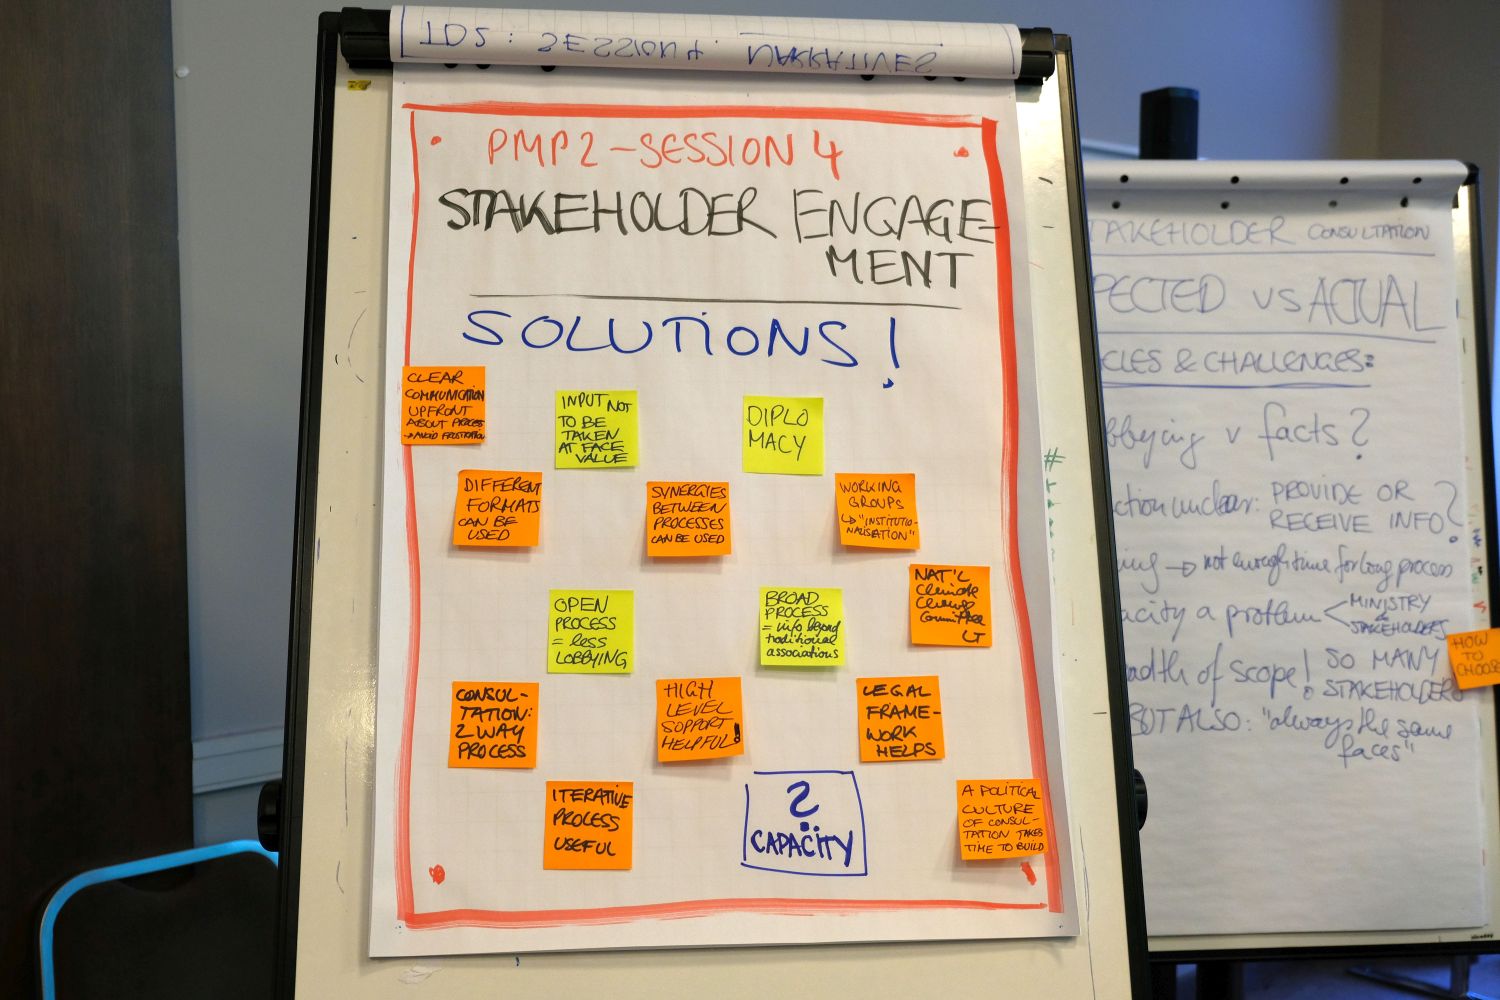 TDS: SESSION 4: NARRATIVES
PMP2 - SESSION 4
STAKEHOLDER ENGAGE-
MENT
SOLUTIONS!
CLEAR
COMMUNICATION
UPFRONT
ABOUT PROCESS
→ AVOID FRUSTRATION
INPUT NOT
TO BE
TAKEN
AT FACE
VALUE
DIPLO
MACY
DIFFERENT
FORMATS
CAN BE
USED
SYNERGIES
BETWEEN
PROCESSES
CAN BE USED
WORKING
GROUPS
↳ "INSTITUTIO-
NALISATION"
OPEN
PROCESS
= less
LOBBYING
BROAD
PROCESS
= info beyond
traditional
associations
NAT'L
Climate
Change
Committee
LT
CONSUL-
TATION:
2 WAY
PROCESS
HIGH
LEVEL
SUPPORT
HELPFUL!
LEGAL
FRAME-
WORK
HELPS
ITERATIVE
PROCESS
USEFUL
?
CAPACITY
A POLITICAL
CULTURE
OF CONSUL-
TATION TAKES
TIME TO BUILD
STAKEHOLDER CONSULTATION
PECTED VS ACTUAL
CLES & CHALLENGES:
bbying v facts?
ction unclear: PROVIDE OR
RECEIVE INFO?
ing → not enough time for long process
acity a problem < MINISTRY
STAKEHOLDERS
adth of scope! SO MANY
STAKEHOLDERS
BUT ALSO: "always the same
faces"
HOW
TO
CHOOSE